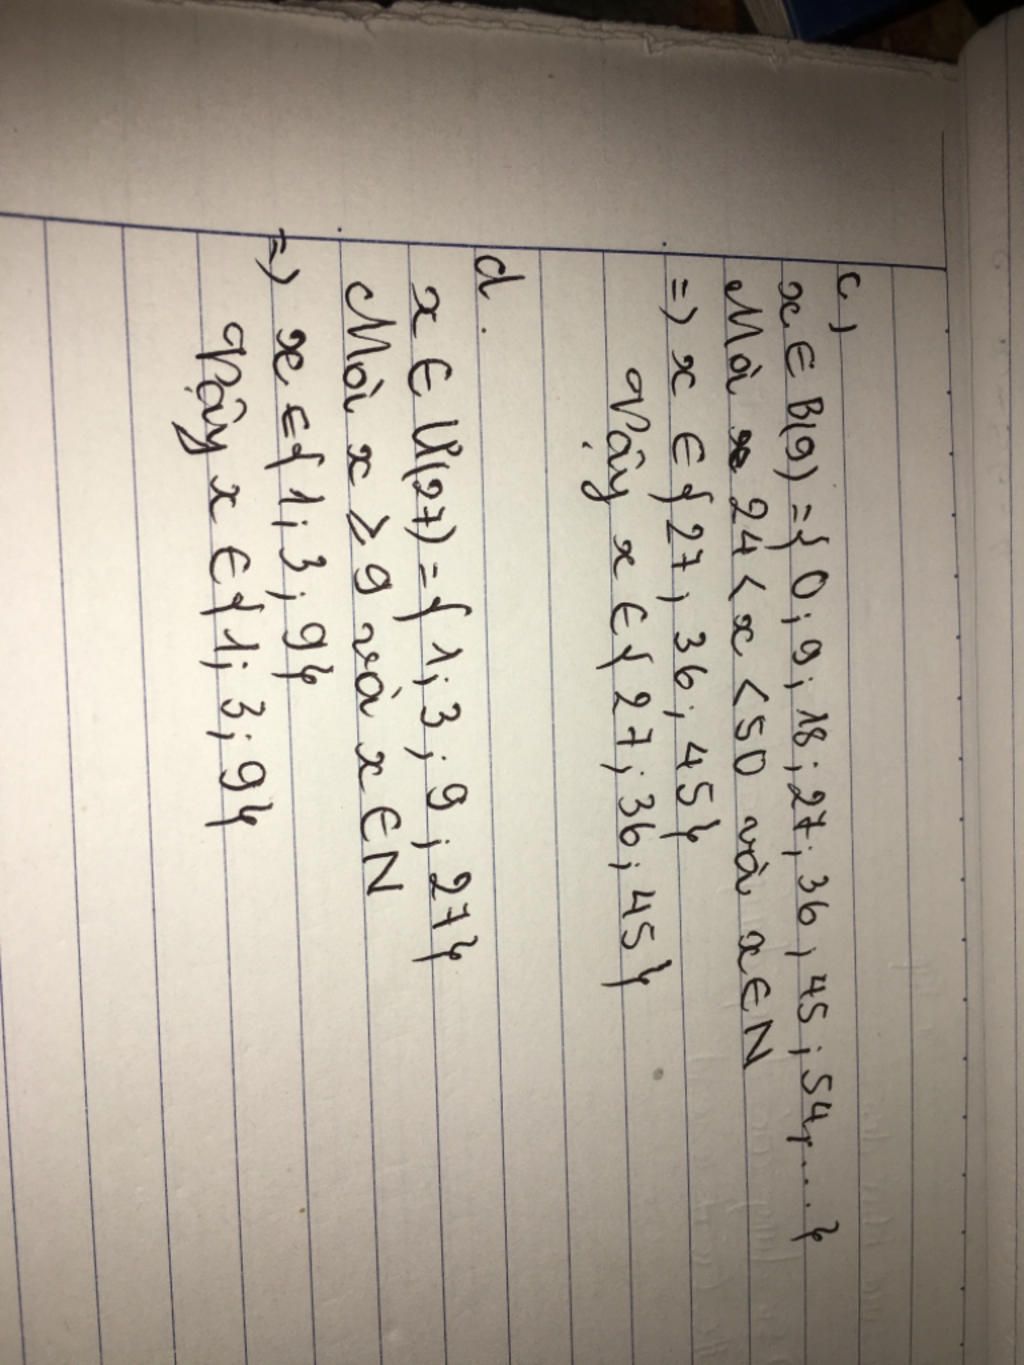 c,
x ∈ B(9) = { 0 ; 9 ; 18 ; 27 ; 36 ; 45 ; 54 ; ... }
Mà 24 < x < 50 và x ∈ N
=> x ∈ { 27 ; 36 ; 45 }
Vậy x ∈ { 27 ; 36 ; 45 }
d.
x ∈ Ư(27) = { 1 ; 3 ; 9 ; 27 }
Mà x ≥ 9 và x ∈ N
=> x ∈ { 1 ; 3 ; 9 }
Vậy x ∈ { 1 ; 3 ; 9 }